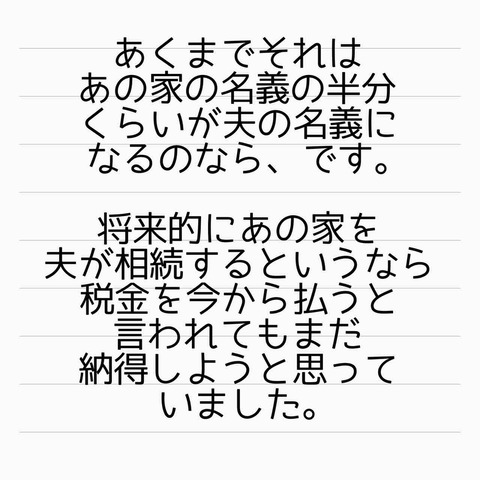 あくまでそれは
あの家の名義の半分
くらいが夫の名義に
なるのなら、です。
将来的にあの家を
夫が相続するというなら
税金を今から払うと
言われてもまだ
納得しようと思って
いました。